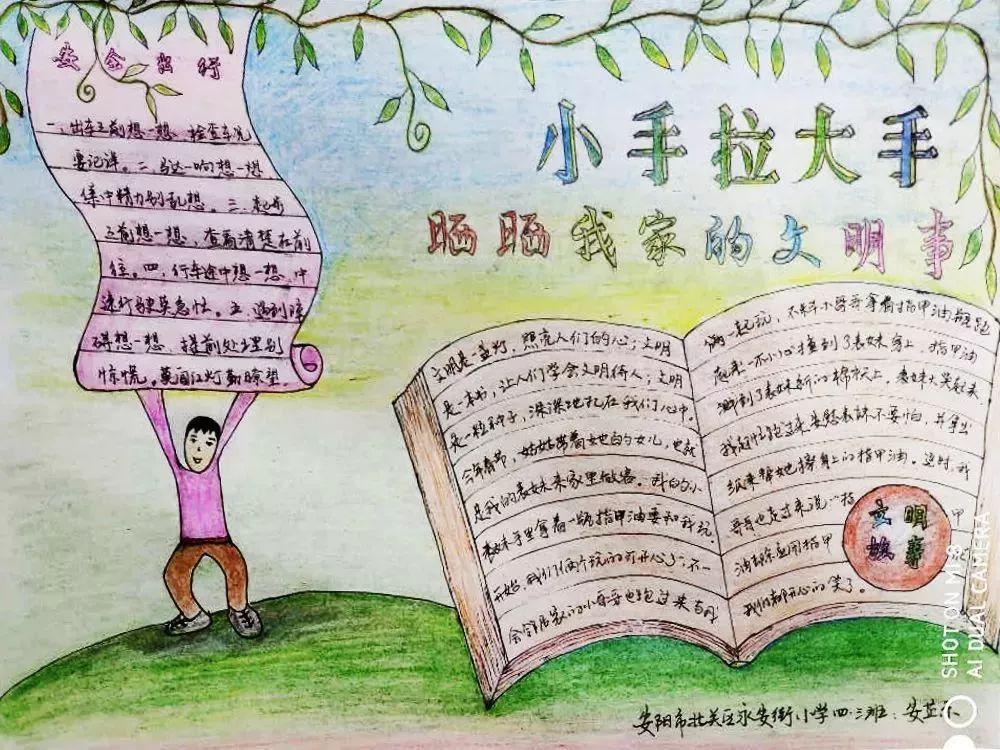 安全出行
一、出车之前想一想，检查车况
要记详。二、马达一响想一想
集中精力别乱想。三、起步
之前想一想，查看清楚在前
往。四、行车途中想一想，中
速行驶莫急忙。五、遇到障
碍想一想，提前处理别
惊慌。莫闯红灯勤瞭望。
小手拉大手
晒晒我家的文明事
文明是一盏灯，照亮人们的心；文明
是一本书，让人们学会文明待人；文明
是一粒种子，深深地扎在我们心中。
今年春节，姑姑带着她的女儿，也就
是我的表妹来家里做客。我的小
表妹手里拿着一瓶指甲油要和我玩
开始，我们俩个玩的可开心了，不一
会邻居家的小哥哥也跑过来与我
俩一起玩，不料小哥哥拿着指甲油瓶跑
起来一不小心撞到了表妹身上，指甲油
洒到了表妹新的棉衣上，表妹大哭起来
我赶忙跑过来安慰表妹不要怕，并拿出
纸来帮她擦身上的指甲油。这时，我
哥哥也走过来说："指甲
油去除应用指甲
我们都开心的笑了。
文明
故事
安阳市北关区永安街小学四·三班：安芷
SHOT ON MI 9
AI DUAL CAMERA